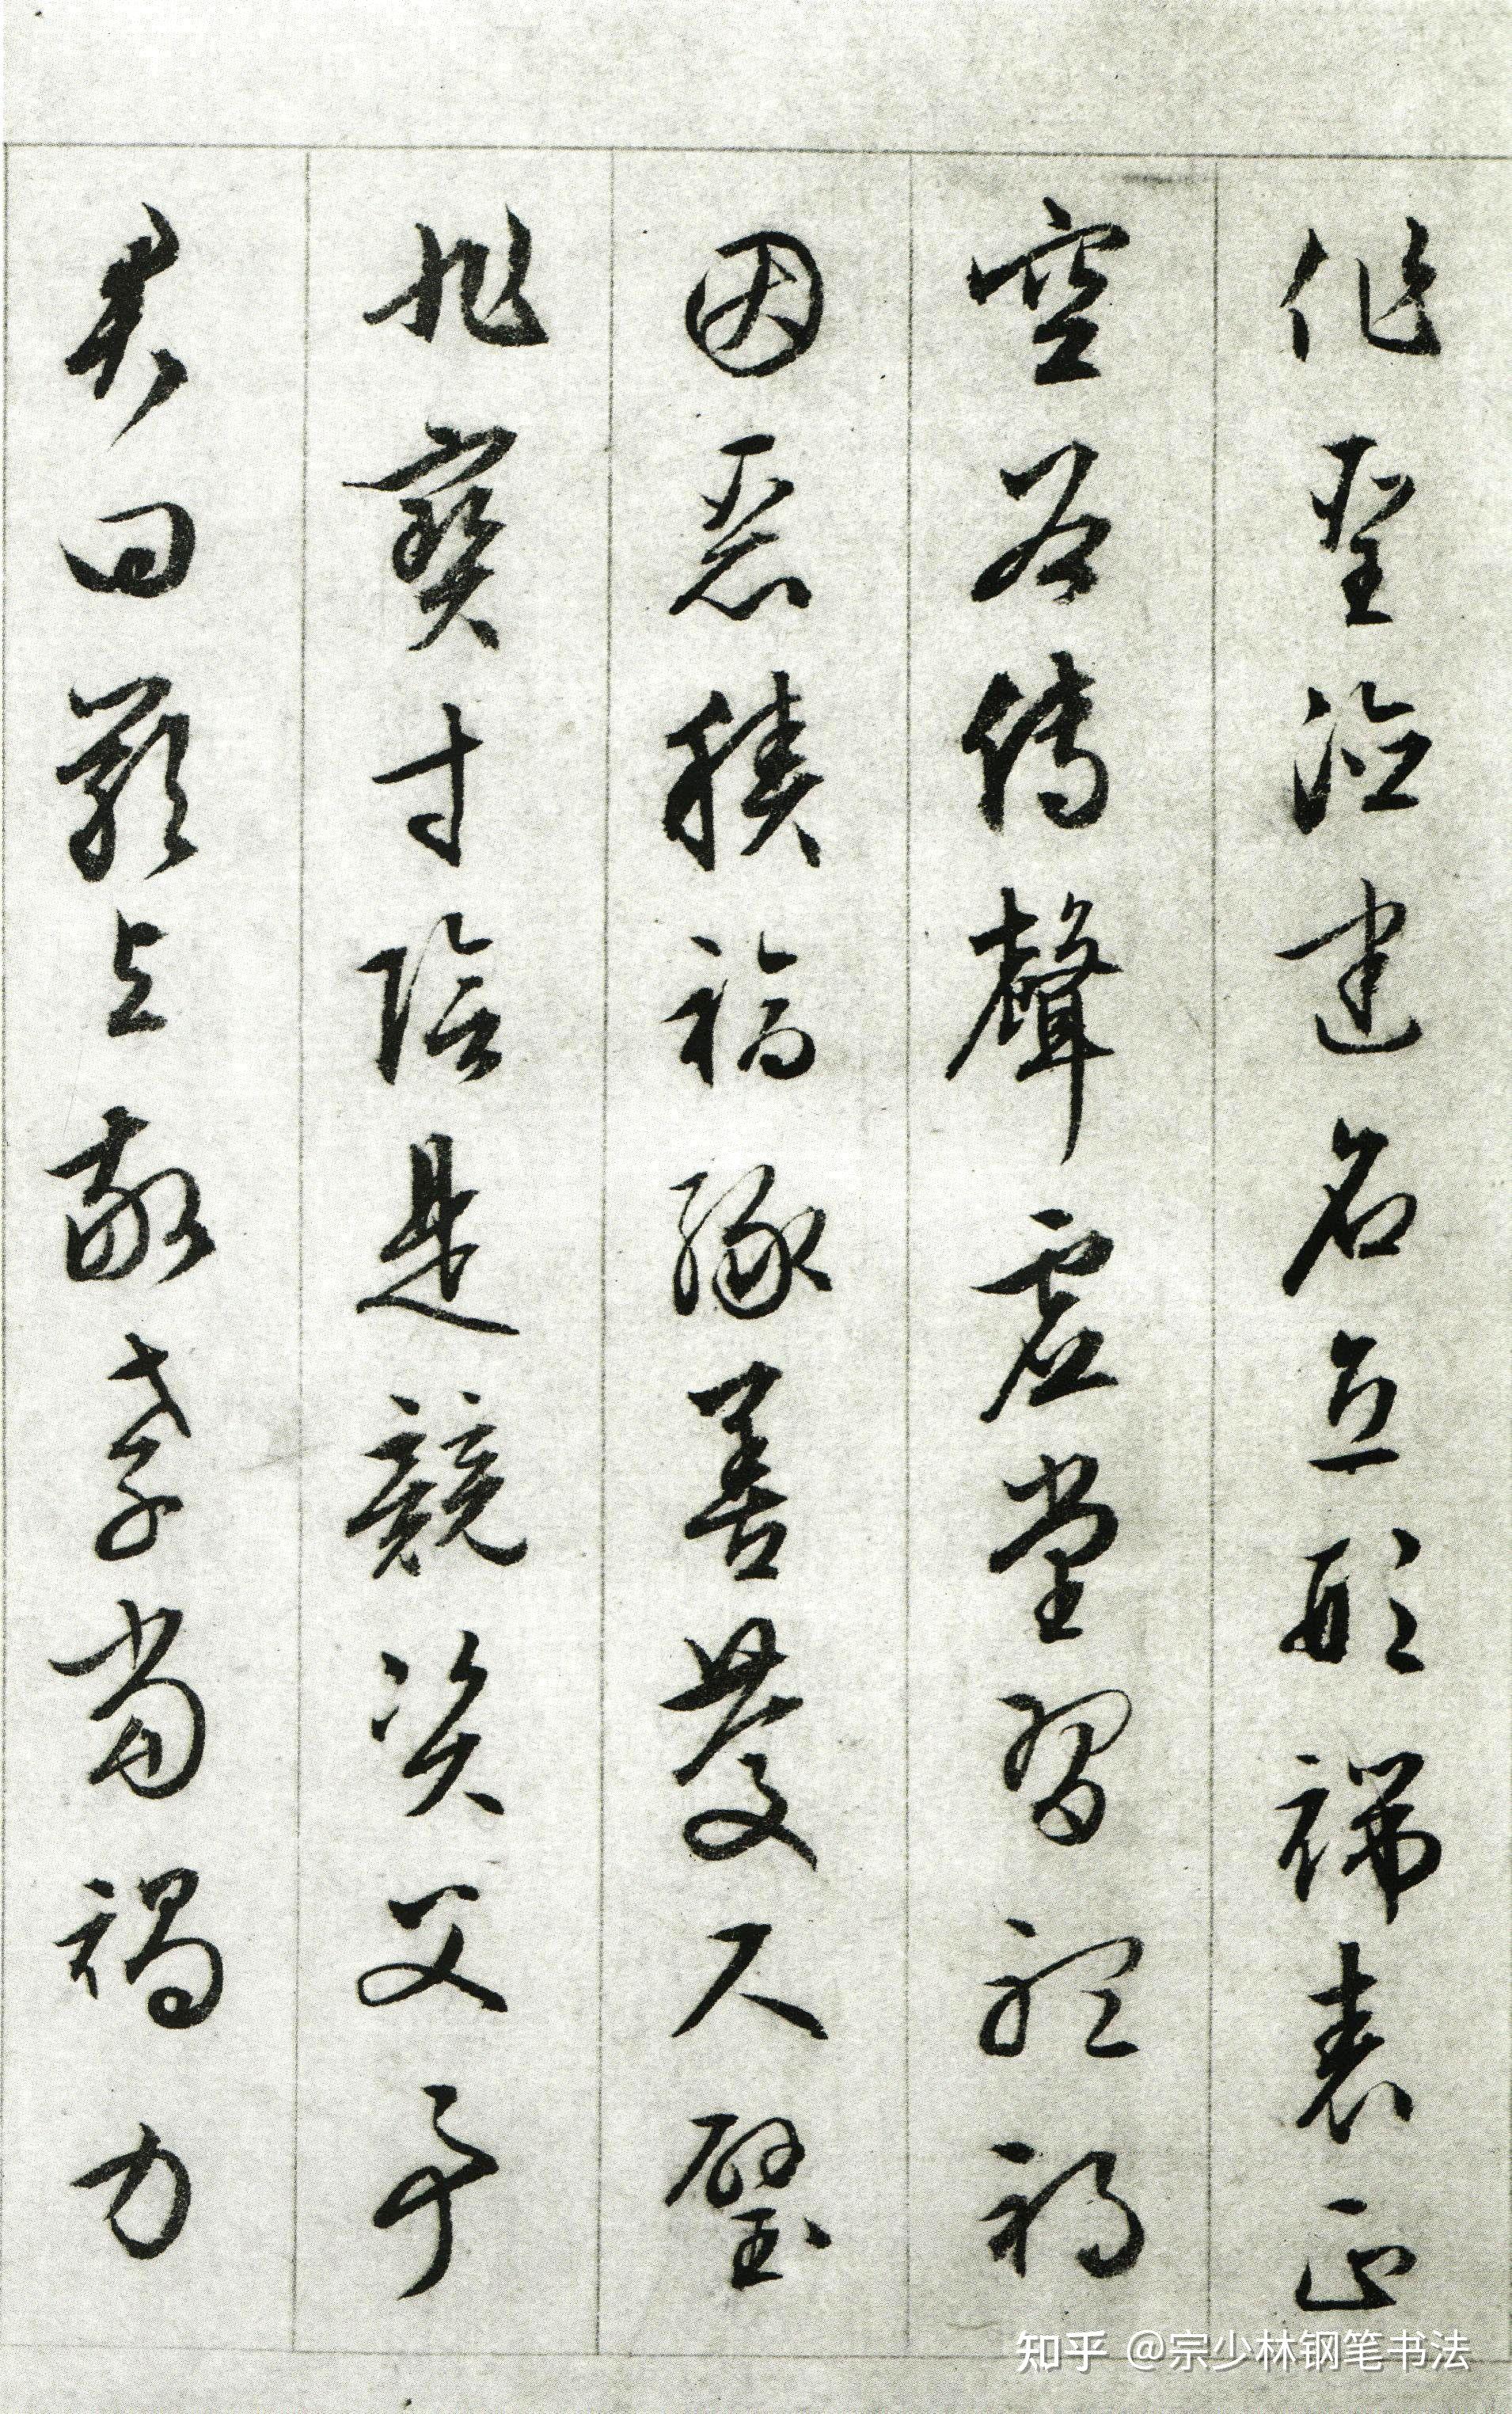 作聖德建名立形端表正
空谷傳聲虛堂習聽禍
因惡積福緣善慶尺璧
非寶寸陰是競資父事
君曰嚴与敬孝當竭力
知乎 @宗少林钢笔书法